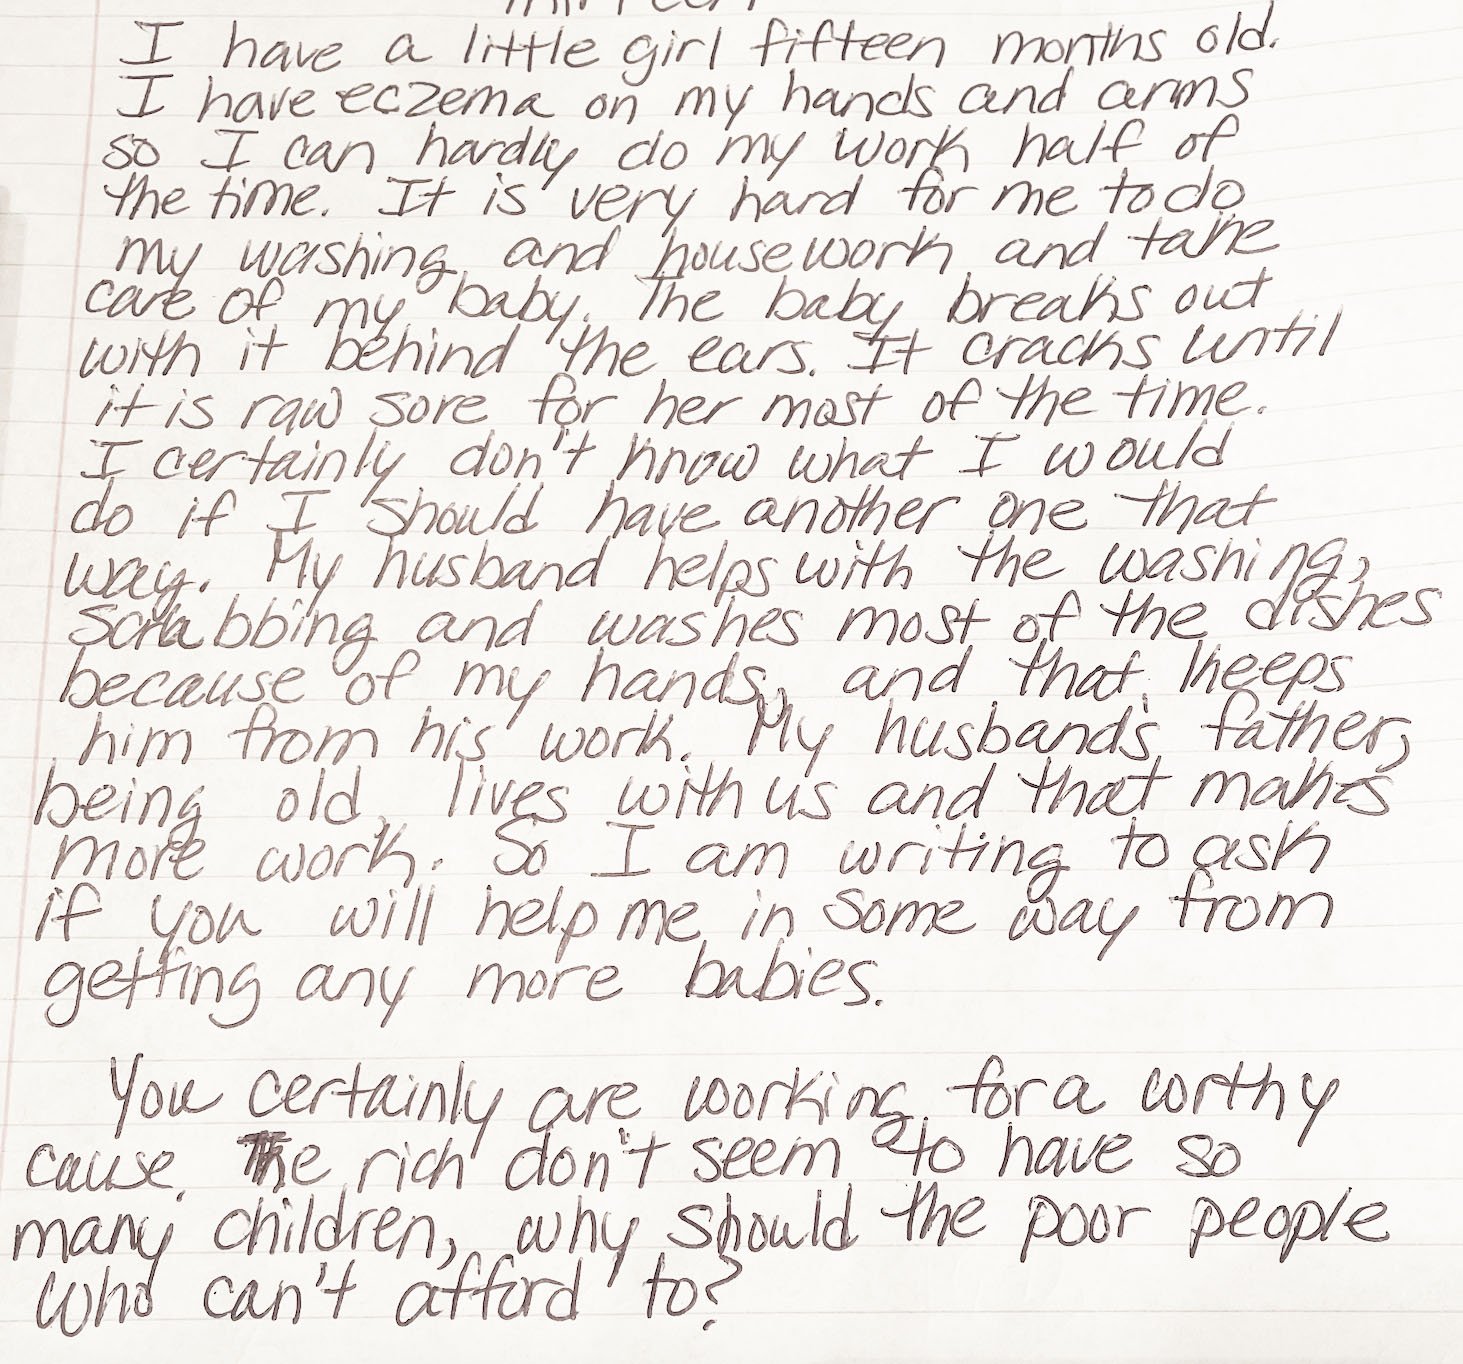 I have a little girl fifteen months old.
I have eczema on my hands and arms
so I can hardly do my work half of
the time. It is very hard for me to do
my washing and housework and take
care of my baby. The baby breaks out
with it behind the ears. It cracks until
it is raw sore for her most of the time.
I certainly don't know what I would
do if I should have another one that
way. My husband helps with the washing,
scrubbing and washes most of the dishes
because of my hands, and that keeps
him from his work. My husband's father,
being old, lives with us and that makes
more work. So I am writing to ask
if you will help me in some way from
getting any more babies.
You certainly are working for a worthy
cause. The rich don't seem to have so
many children, why should the poor people
who can't afford to?